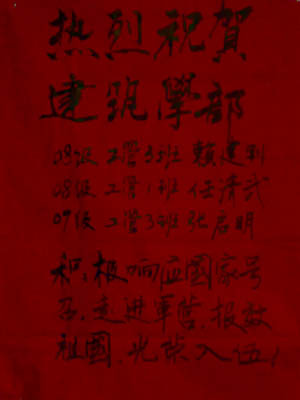 热烈祝贺
建筑學部
08级 工管35班 赖建
08级 工管1班 任清武
09级 工管3班 张启明
积极响应國家号
召,走进軍营,报效
祖國,光荣入伍!